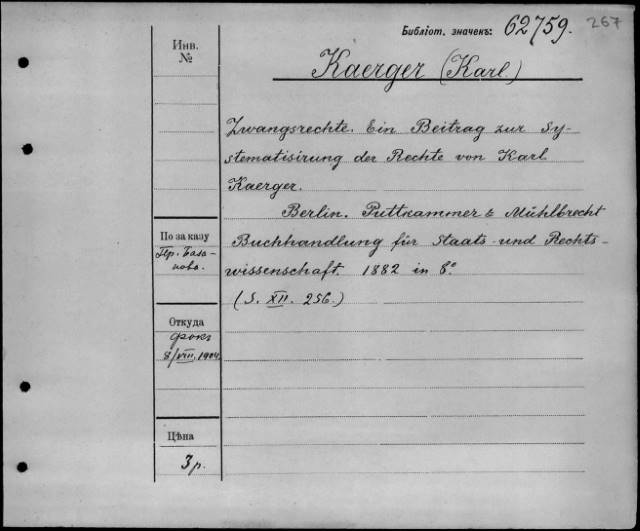 Библіот. значекъ: 62759. 267
Инв.
№
Kaerger (Karl.)
Zwangsrechte. Ein Beitrag zur Sy-
stematisirung der Rechte von Karl
Kaerger.
Berlin. Puttkammer & Mühlbrecht
Buchhandlung für Staats- und Rechts-
wissenschaft. 1882 in 8°
(S. XII. 256.)
По заказу
Пр. База-
нова.
Откуда
Фокъ
8/VIII. 1904.
Цѣна
3 р.